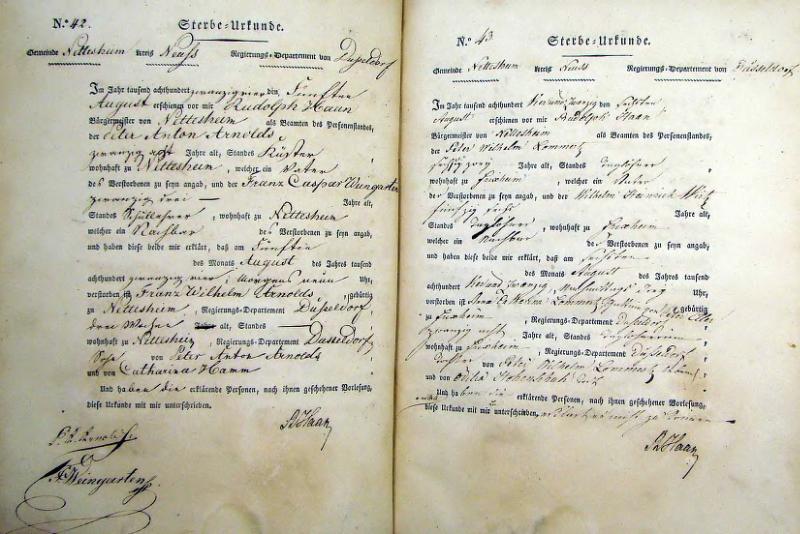 No. 42. Sterbe-Urkunde.
Gemeinde Nettesheim Kreis Neuss Regierungs-Departement von Düsseldorf
Im Jahr tausend achthundert zwanzig vier den Fünften
August erschienen vor mir Rudolph Haan
Bürgermeister von Nettesheim als Beamten des Personenstandes,
der Peter Anton Arnolds,
zwanzig acht Jahre alt, Standes Küster
wohnhaft zu Nettesheim, welcher ein Vater
des Verstorbenen zu seyn angab, und der Franz Caspar Wungarten
zwanzig drei — Jahre alt,
Standes Schullehrer, wohnhaft zu Nettesheim
welcher ein Nachbar des Verstorbenen zu seyn angab,
und haben diese beide mir erklärt, daß am Fünften
des Monats August des Jahres tausend
achthundert zwanzig vier, Morgens neun Uhr,
verstorben ist Franz Wilhelm Arnolds, gebürtig
zu Nettesheim, Regierungs-Departement Düsseldorf
drei Wochen Jahre alt, Standes —
wohnhaft zu Nettesheim, Regierungs-Departement Düsseldorf
Sohn von Peter Anton Arnolds
und von Catharina Hamm
Und haben die erklärende Personen, nach ihnen geschehener Vorlesung,
diese Urkunde mit mir unterschrieben.
RHaan
P. A. Arnolds.
F. Weingarten
No. 43 Sterbe-Urkunde.
Gemeinde Nettesheim Kreis Neuss Regierungs-Departement von Düsseldorf
Im Jahr tausend achthundert zwanzig den sechsten
August erschienen vor mir Rudolph Haan
Bürgermeister von Nettesheim als Beamten des Personenstandes,
der Peter Wilhelm Lommertz
sechszig zwey Jahre alt, Standes Taglöhner
wohnhaft zu Frixheim, welcher ein Vater
des Verstorbenen zu seyn angab, und der Wilhelm Heinrich Wirtz
fünfzig sechs Jahre alt,
Standes Taglöhner, wohnhaft zu Frixheim
welcher ein Nachbar des Verstorbenen zu seyn angab,
und haben diese beide mir erklärt, daß am sechsten
des Monats August des Jahres tausend
achthundert zwanzig, Nachmittags zwey Uhr,
verstorben ist Anna Catharina Lommertz Gattin von gebürtig
zu Frixheim, Regierungs-Departement Düsseldorf
zwanzig acht Jahre alt, Standes Taglöhnerinn
wohnhaft zu Frixheim, Regierungs-Departement Düsseldorf
Tochter von Peter Wilhelm Lommertz
und von
Und haben die erklärende Personen, nach ihnen geschehener Vorlesung,
diese Urkunde mit mir unterschrieben,
RHaan